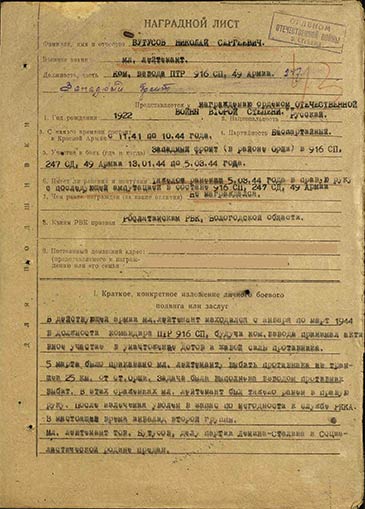 НАГРАДНОЙ ЛИСТ
ОРДЕНОМ
ОТЕЧЕСТВЕННОЙ ВОЙНЫ
Фамилия, имя и отчество БУТУСОВ НИКОЛАЙ СЕРГЕЕВИЧ.
Военное звание мл. лейтенант.
Должность, часть Ком. взвода ПТР 916 СП, 49 Армия.
Западный фронт
Представляется к награждению орденом ОТЕЧЕСТВЕННОЙ
ВОЙНЫ ВТОРОЙ СТЕПЕНИ.
1. Год рождения 1922 2. Национальность Русский.
3. С какого времени в Красной Армии С 11.41 по 10.44 года. 4. Партийность Беспартийный.
5. Участие в боях (где и когда) Западный фронт (в районе Орши) в 916 СП,
247 СД, 49 Армия 13.01.44 по 5.03.44 года.
6. Имеет ли ранения и контузии Тяжелое ранение 5.03.44 года в правую руку
с последующей ампутацией в составе 916 СП, 247 СД, 49 Армии
7. Чем ранее награжден (за какие отличия) Не награждался.
8. Каким РВК призван Рослятинским РВК, Вологодской области.
9. Постоянный домашний адрес:
(представляемого к награждению или его семьи)
для подшивки
I. Краткое, конкретное изложение личного боевого
подвига или заслуг
В действующей армии мл. лейтенант находился с января по март 1944
в должности командира ПТР 916 СП, будучи ком. взвода принимал акти
вное участие в уничтожение дотов и живой силы противника.
5 марта было приказано мл. лейтенанту выбить противника из тран-
шеи 25 км. от ст. Орши. Задача была выполнена взводом противник
выбит. В этих сражениях мл. лейтенант был тяжело ранен в правую
руку. После излечения уволен в запас по негодности к службе РККА.
В настоящее время инвалид второй группы.
Мл. лейтенант тов. Бутусов, делу партии Ленина-Сталина и Социа-
листической родине предан.